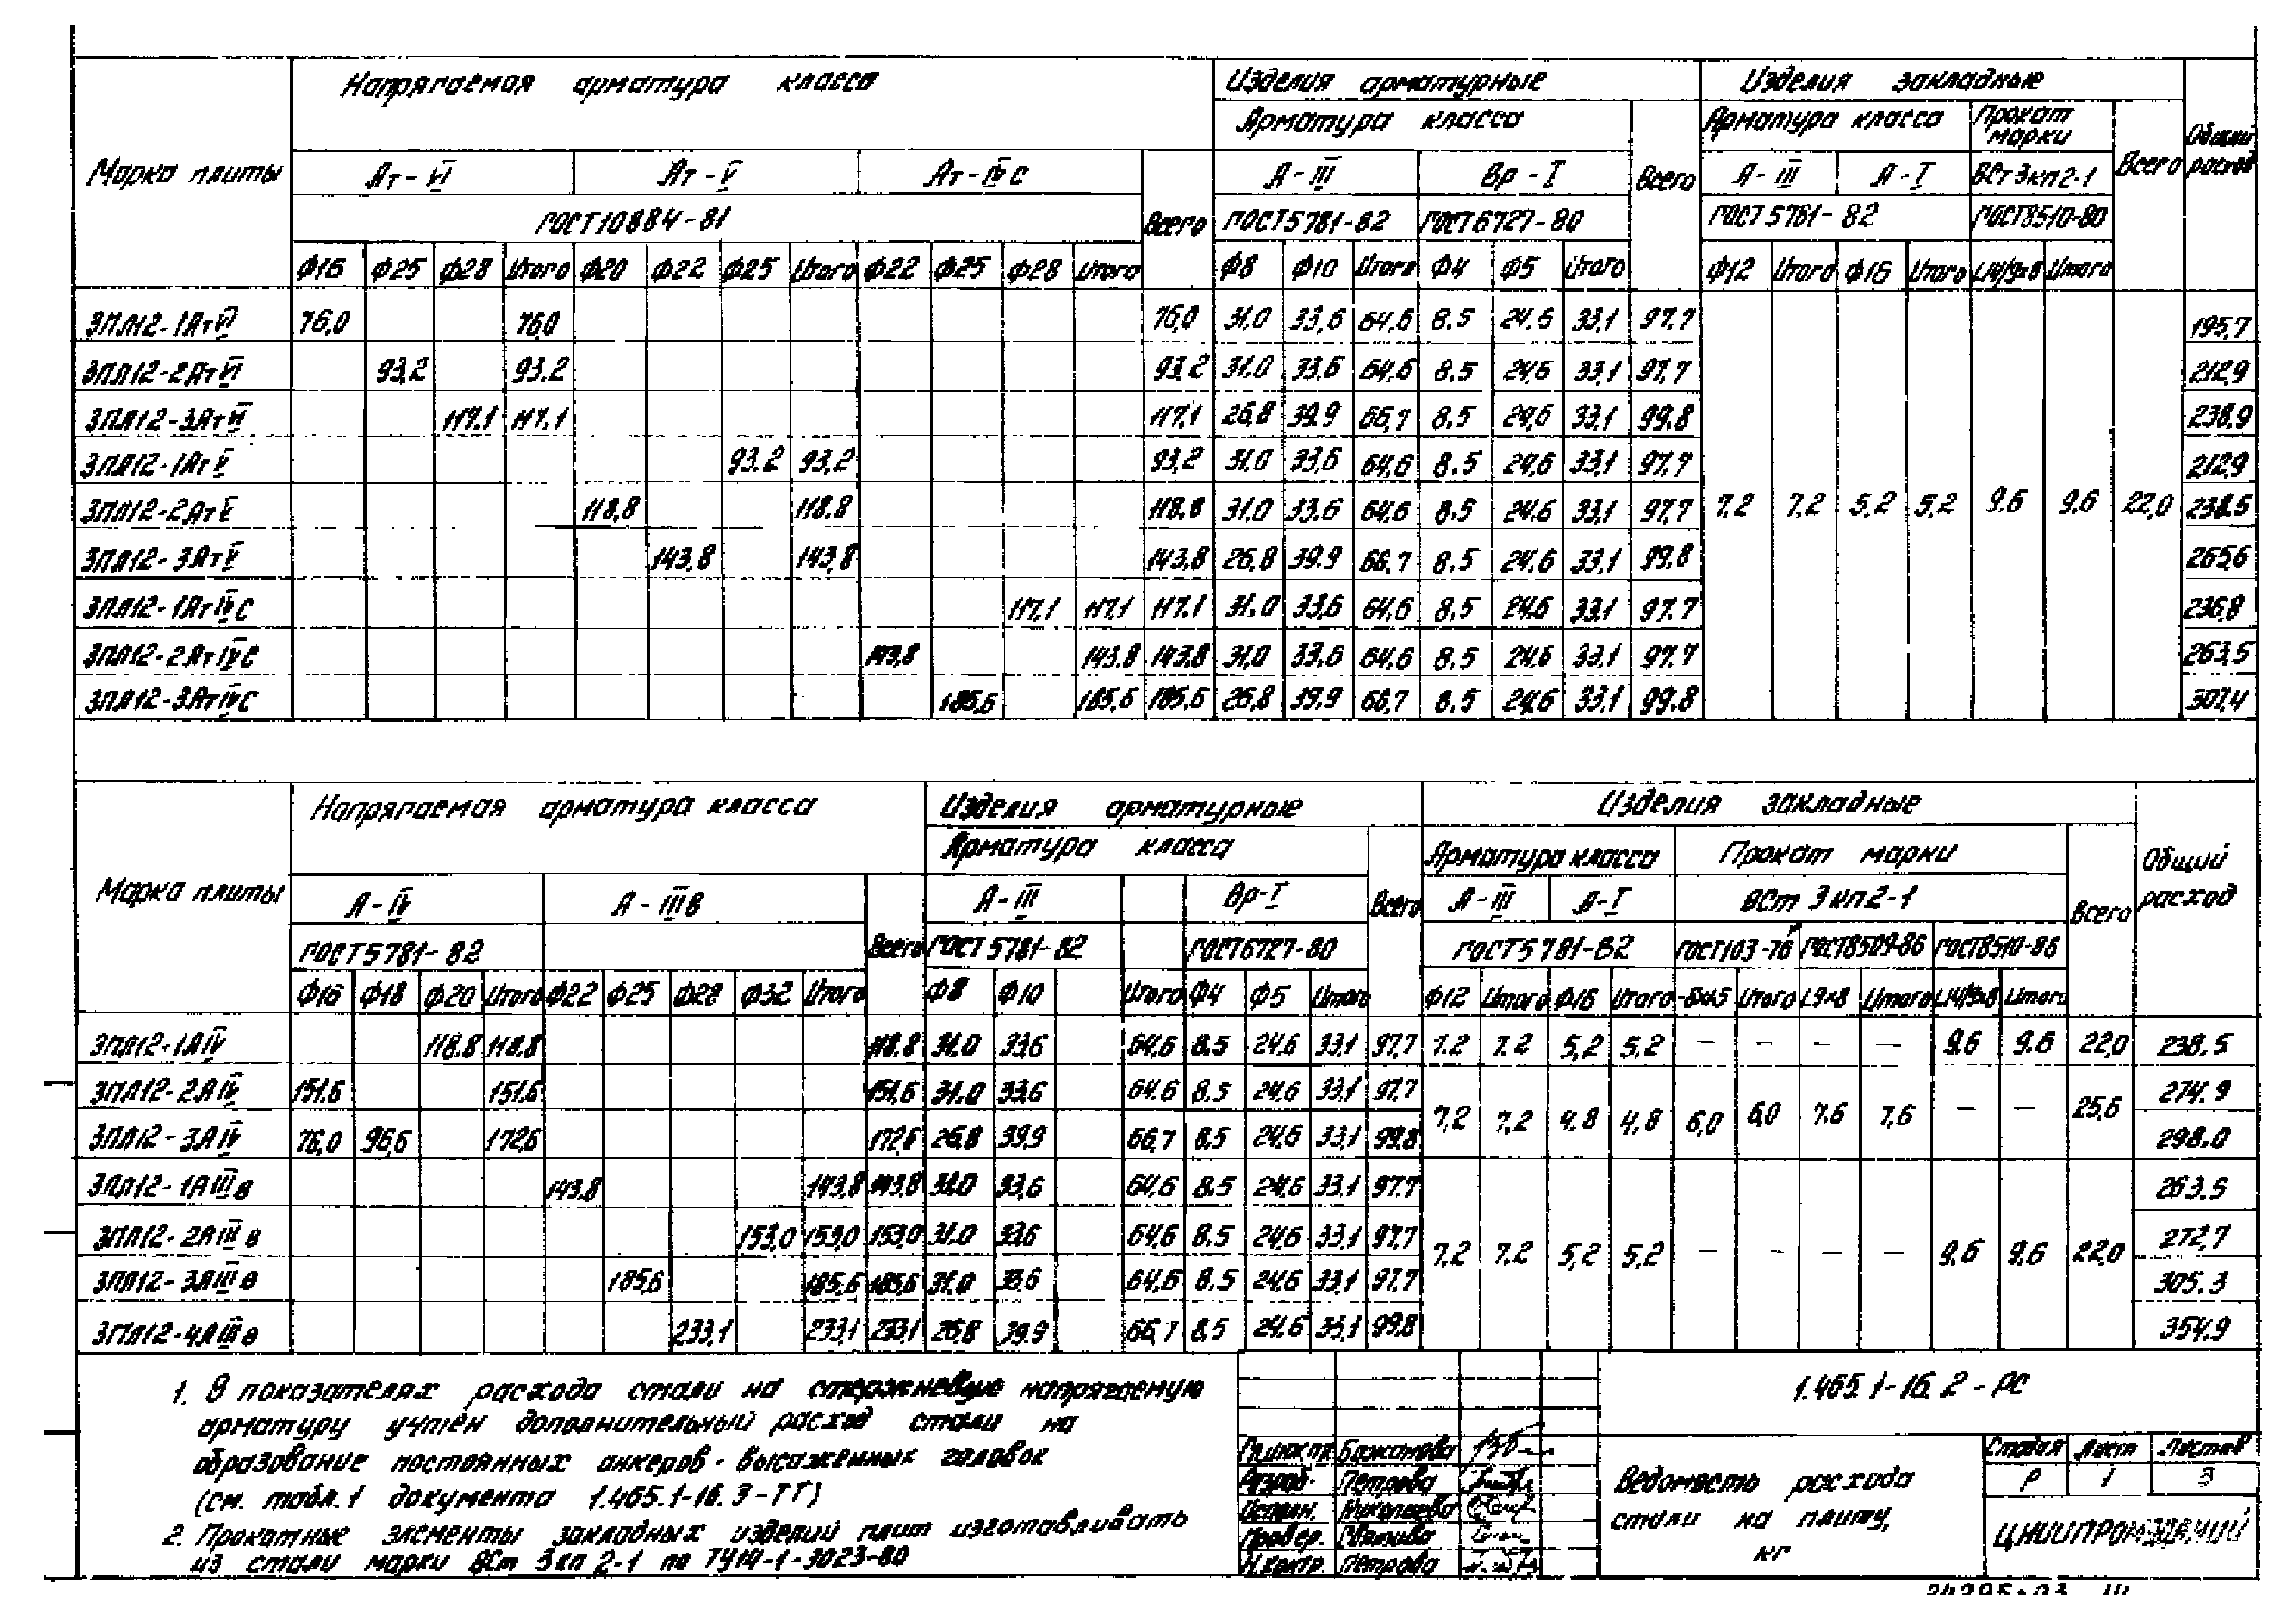 Напрягаемая арматура класса Изделия арматурные Изделия закладные
Марка плиты Арматура класса Всего Арматура класса Прокат марки Всего Общий расход
Ат-VI Ат-V Ат-IVС Всего А-III Вр-I А-III А-I ВСт3кп2-1
ГОСТ10884-81 ГОСТ5781-82 ГОСТ6727-80 ГОСТ5781-82 ГОСТ8510-80
Ф16 Ф25 Ф28 Итого Ф20 Ф22 Ф25 Итого Ф22 Ф25 Ф28 Итого Ф8 Ф10 Итого Ф4 Ф5 Итого Ф12 Итого Ф16 Итого Итого
3ПЛ12-1АтVI 76,0 76,0 76,0 31.0 33,6 64,6 8.5 24,6 33,1 97.7 195,7
3ПЛ12-2АтVI 93,2 93.2 93,2 31.0 33,6 64,6 8.5 24,6 33,1 97,7 212,9
3ПЛ12-3АтVI 117.1 117.1 117,1 26,8 39,9 66,7 8.5 24,6 33,1 99.8 238,9
3ПЛ12-1АтV 93.2 93,2 93,2 31.0 33,6 64,6 8.5 24,6 33,1 97.7 212,9
3ПЛ12-2АтV 118,8 118.8 118.8 31.0 33,6 64,6 8,5 24.6 33,1 97,7 7,2 7,2 5,2 5,2 9,6 9,6 22,0 238,5
3ПЛ12-3АтV 143,8 143,8 143,8 26,8 39.9 66.7 8,5 24,6 33,1 99,8 265,6
3ПЛ12-1АтIVС 117,1 117,1 117,1 31.0 33,6 64,6 8,5 24,6 33,1 97.7 236,8
3ПЛ12-2АтIVС 143,8 143.8 143,8 31,0 33,6 64,6 8.5 24,6 33,1 97.7 263,5
3ПЛ12-3АтIVС 185,6 185,6 185,6 26,8 39,9 66,7 8.5 24,6 33,1 99.8 307,4
Напрягаемая арматура класса Изделия арматурные Изделия закладные
Марка плиты Арматура класса Всего Арматура класса Прокат марки Всего Общий расход
А-IV А-IIIв Всего А-III Вр-I А-III А-I ВСт 3 кп2-1
ГОСТ5781-82 ГОСТ5781-82 ГОСТ6727-80 ГОСТ5781-82 ГОСТ103-76 ГОСТ8509-86 ГОСТ8510-86
Ф16 Ф18 Ф20 Итого Ф22 Ф25 Ф28 Ф32 Итого Ф8 Ф10 Итого Ф4 Ф5 Итого Ф12 Итого Ф16 Итого Итого L9×8 Итого Итого
3ПЛ12-1АIV 118.8 118.8 118.8 31.0 33,6 64,6 8.5 24,6 33,1 97,7 7.2 7.2 5,2 5,2 — — — — 9.6 9.6 22,0 238,5
3ПЛ12-2АIV 151,6 151.6 151,6 31.0 33,6 64.6 8.5 24,6 33,1 97,7 7,2 7,2 4,8 4,8 6,0 6,0 7,6 7,6 — — 25,6 274.9
3ПЛ12-3АIV 76,0 96,6 172,6 172,6 26,8 39,9 66,7 8.5 24,6 33,1 99,8 298.0
3ПЛ12-1АIIIв 143,8 143,8 143,8 31.0 33,6 64,6 8.5 24,6 33.1 97.7 263.5
3ПЛ12-2АIIIв 153,0 153,0 153,0 31.0 33,6 64,6 8.5 24,6 33,1 97,7 7,2 7,2 5,2 5,2 — — — — 9,6 9,6 22,0 272,7
3ПЛ12-3АIIIв 185,6 185,6 185,6 31.0 33,6 64,6 8.5 24,6 33,1 97.7 305.3
3ПЛ12-4АIIIв 233,1 233,1 233,1 26,8 39.9 66,7 8.5 24.6 33,1 99.8 354.9
1. В показателях расхода стали на стержневую напрягаемую
арматуру учтен дополнительный расход стали на
образование постоянных анкеров-высаженных головок
(см. табл.1 документа 1.465.1-16.3-ТТ)
2. Прокатные элементы закладных изделий плит изготавливать
из стали марки ВСт 3кп 2-1 по ТУ14-1-3023-80
1.465.1-16.2-РС
Гл.инж.пр. Бажанова
Разраб. Петрова
Исполн. Николаева
Провер.
Н.контр. Петрова
Ведомость расхода
стали на плиту,
кг
Стадия Лист Листов
Р 1 3
ЦНИИПРОМЗДАНИЙ